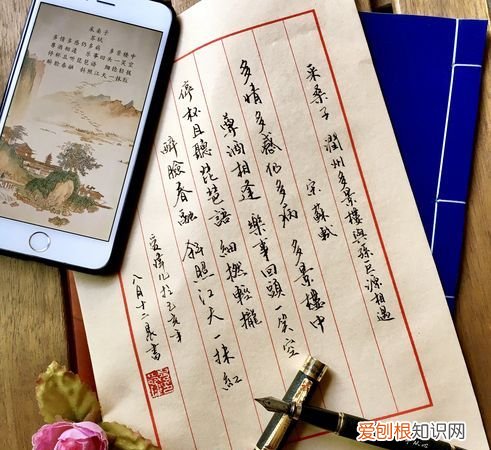 采桑子
苏轼
多情多感仍多病 多景楼中
尊酒相逢 乐事回头一笑空
停杯且听琵琶语 细捻轻拢
醉脸春融 斜照江天一抹红
采桑子 潤州多景樓與孫巨源相遇
宋 蘇軾
多情多感仍多病 多景樓中
尊酒相逢 樂事回頭一笑空
停杯且聽琵琶語 細撚輕攏
醉臉春融 斜照江天一抹紅
於己亥年
八月十二晨書
爱刨根知识网